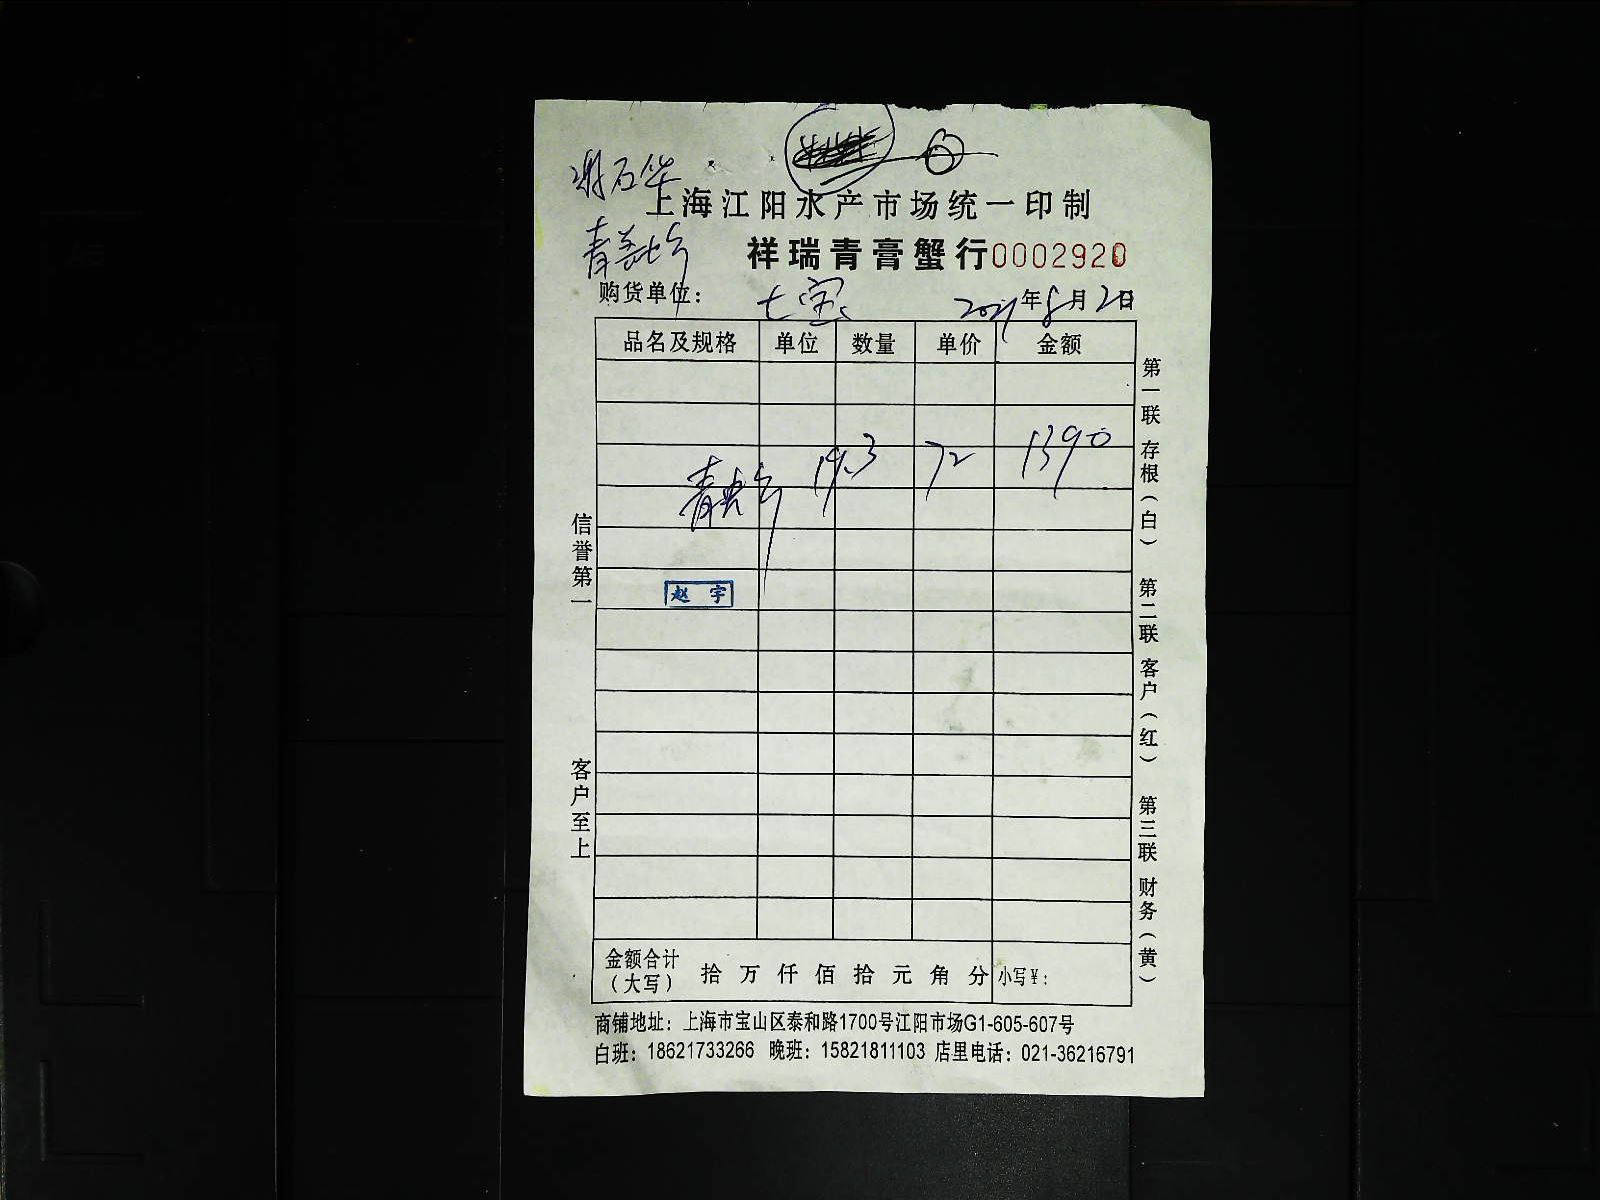 谢石华
上海江阳水产市场统一印制
祥瑞青膏蟹行0002920
购货单位: 七宝 2021年8月2日
品名及规格 单位 数量 单价 金额
19.3 72 1390
赵 宇
金额合计(大写) 拾 万 仟 佰 拾 元 角 分 小写¥:
商铺地址: 上海市宝山区泰和路1700号江阳市场G1-605-607号
白班: 18621733266 晚班: 15821811103 店里电话: 021-36216791
信誉第一 客户至上
第一联 存根(白) 第二联 客户(红) 第三联 财务(黄)